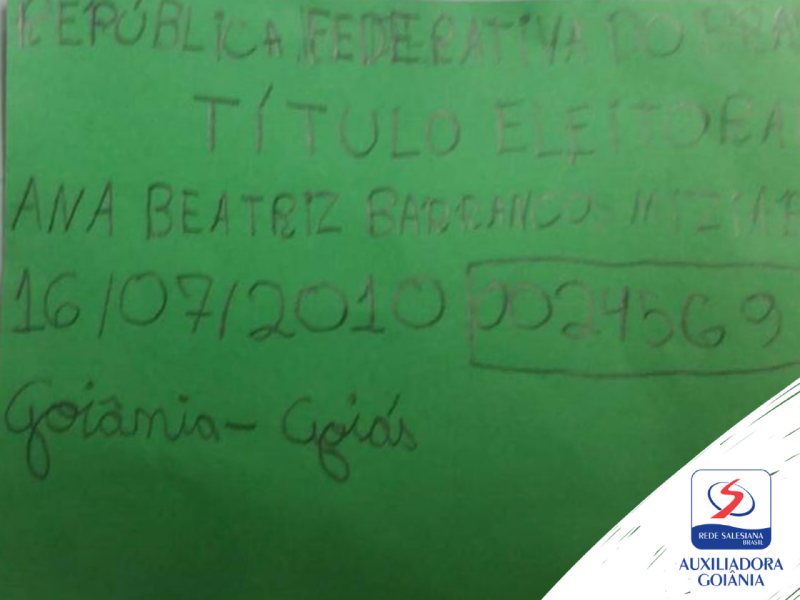 REPÚBLICA FEDERATIVA DO
TÍTULO ELEITORA
ANA BEATRIZ BARRANCOS
16/07/2010 0024569
Goiânia - Goiás
REDE SALESIANA
BRASIL
AUXILIADORA
GOIÂNIA